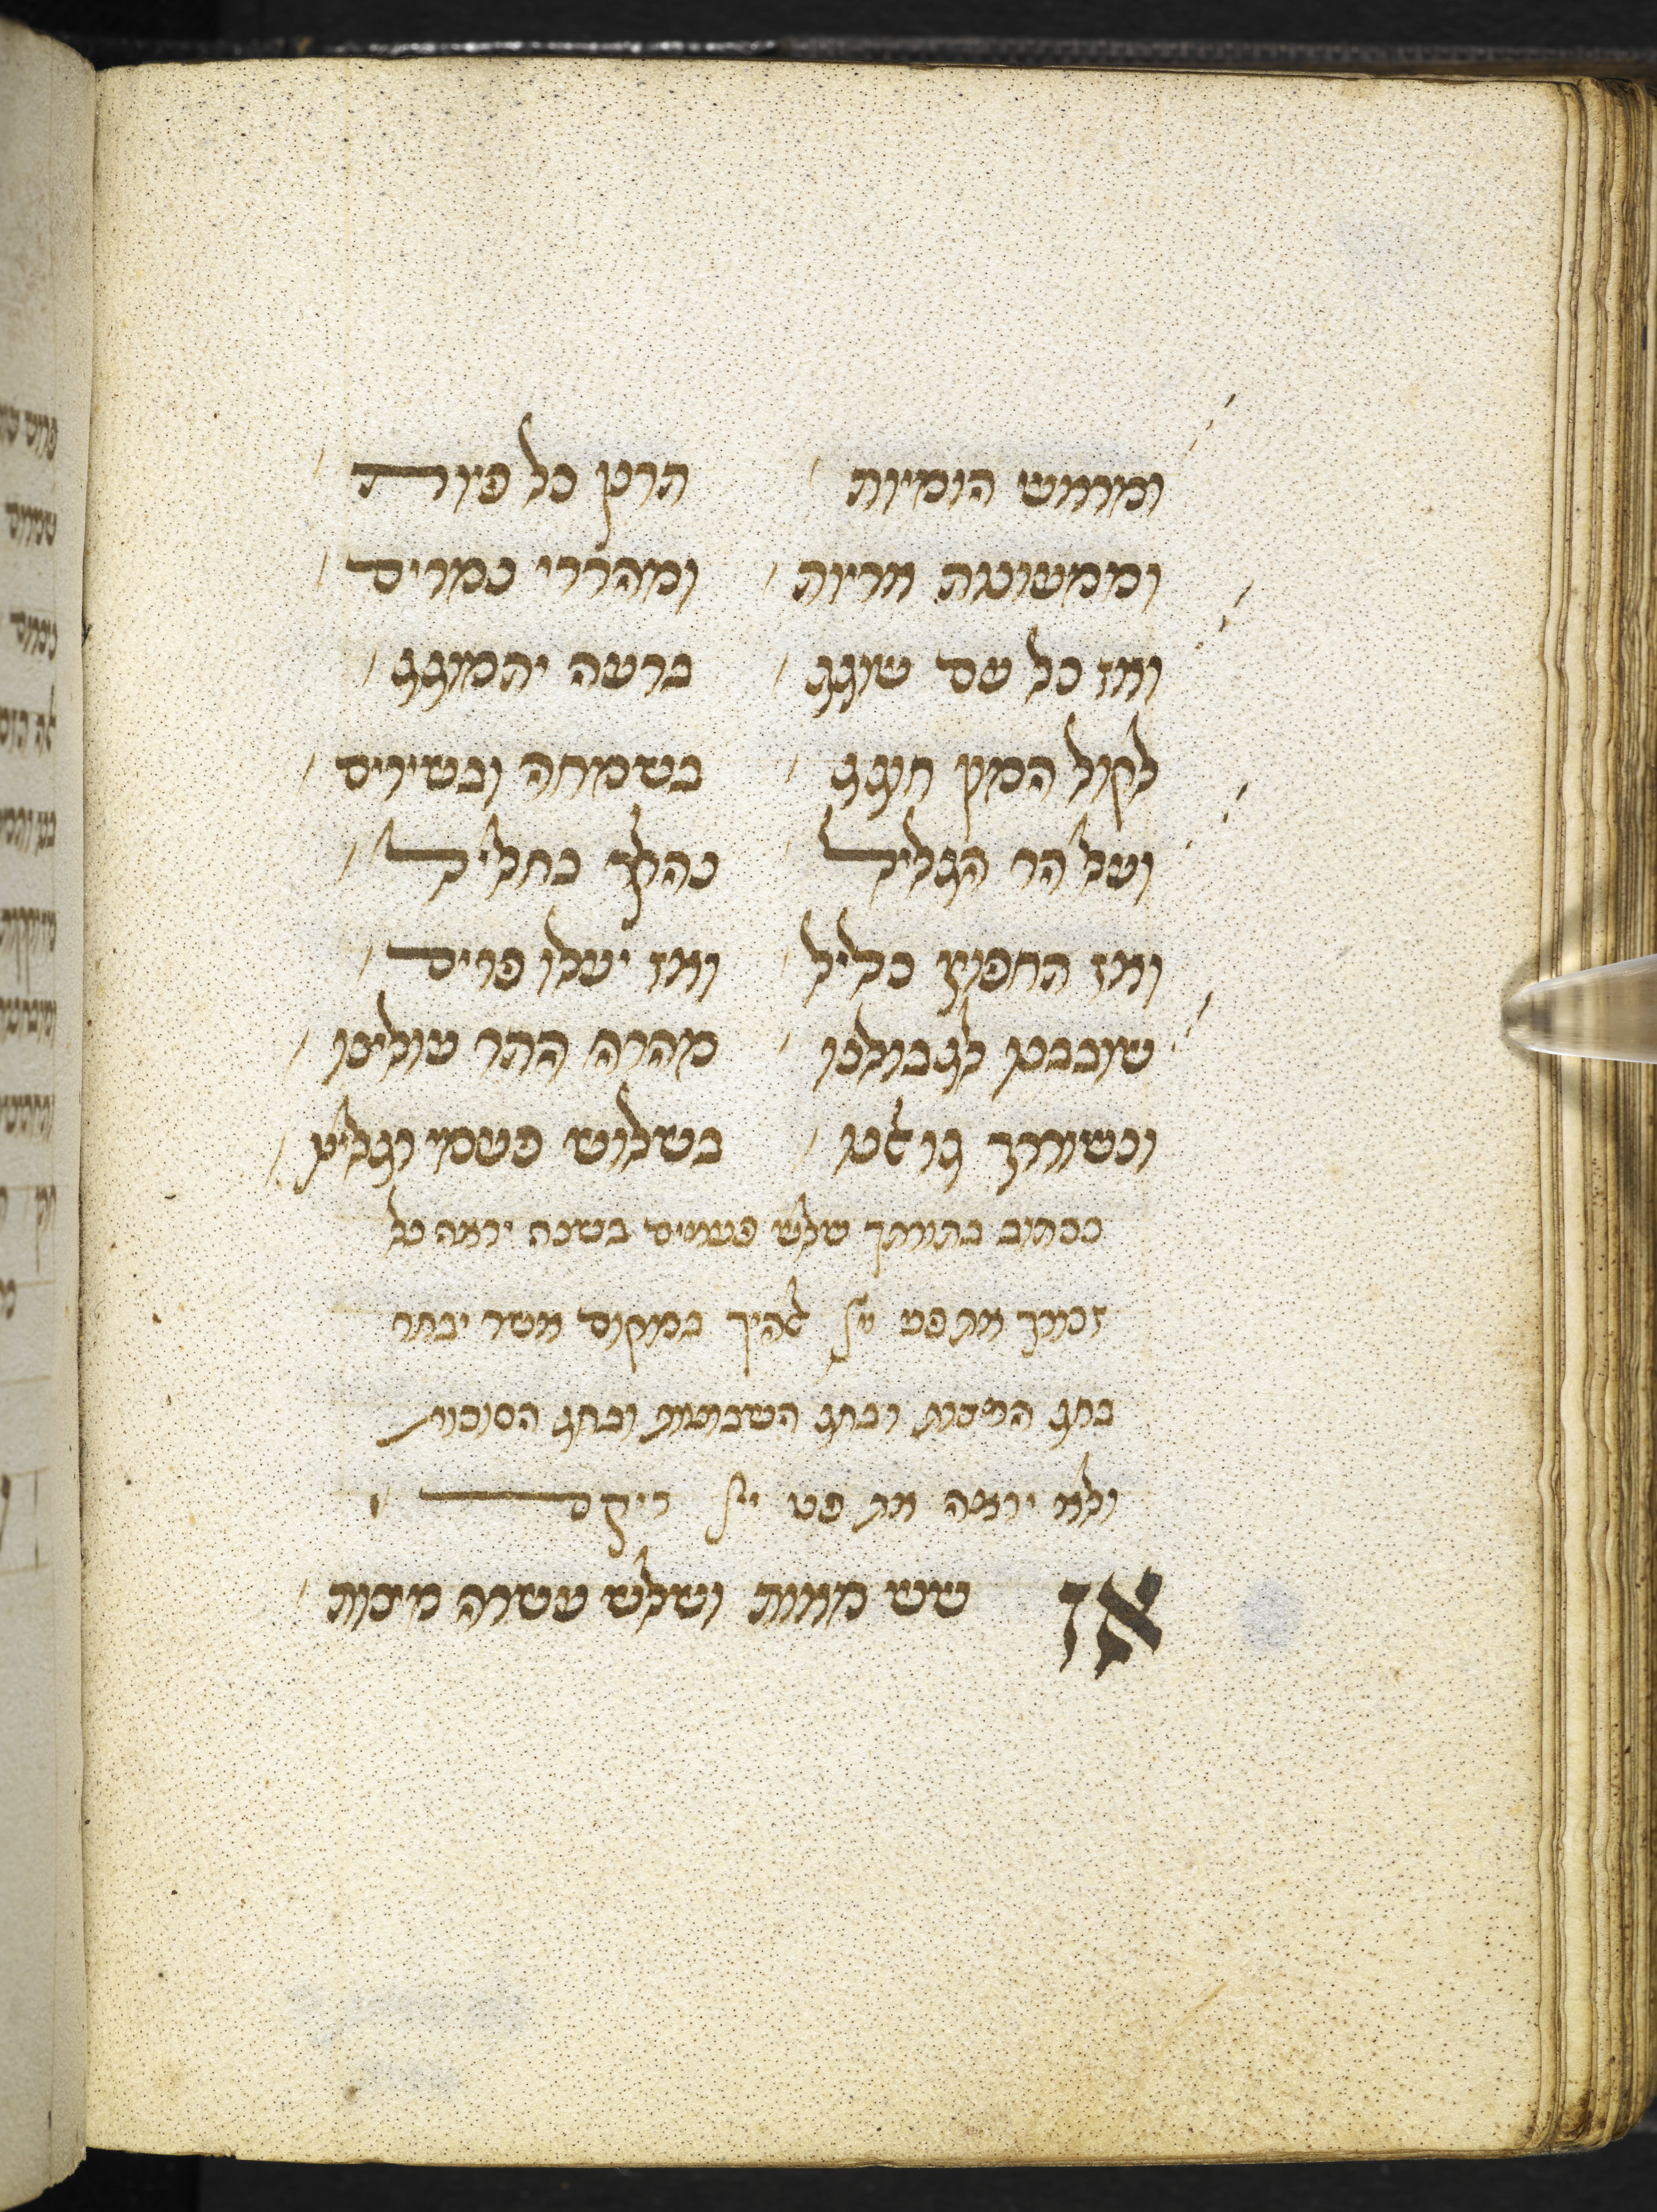 ומראש הומיות תרנן כל פיות
וממעונות אריות ומהררי נמרים
ואז כל עם שוגג ברעה יתמוגג
לקול המון חוגג בשמחה ובשירים
ועל הר הגליל כהולך בחליל
ואז החפוץ כליל ואז יעלו פרים
שובבנו לגבולנו מהרה התר עולינו
ונשורר גואלנו בשלוש פעמי רגלינו
ככתוב בתורתך שלש פעמים בשנה יראה כל
זכורך את פני יי אלהיך במקום אשר יבחר
בחג המצות ובחג השבועות ובחג הסוכות
ולא יראה את פני יי ריקם
אז שש מאות ושלש עשרה מצות